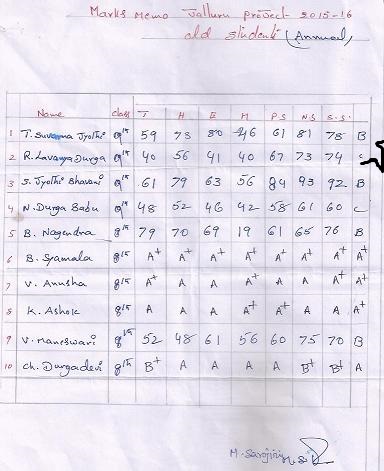 Marks Memo Valluru project 2015-16
old students (Annual)
Name class T H E M P.S N.S S.S.
1 T. Suvarna Jyothi 9th 59 73 80 46 61 81 78 B
2 R. Lavanya Durga 9th 40 56 41 40 67 73 74 C
3 S. Jyothi Bhavani 9th 61 79 63 56 84 93 92 B
4 N. Durga Babu 9th 48 52 46 42 58 61 60 C
5 B. Nagendra 8th 79 70 69 19 61 65 76 B
6 B. Syamala 8th A+ A+ A+ A+ A+ A+ A+ A+
7 V. Anusha 8th A+ A A A+ A+ A+ A+ A+
8 K. Ashok 8th A A A A+ A+ A A A+
9 V. Maneswari 9th 52 48 61 56 60 75 70 B
10 Ch. Durgadevi 8th B+ A A A A B+ B+ A
M. Sarojini